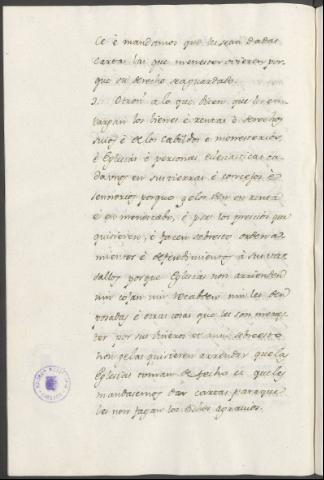 Ce è mandamos que les sean dadas
cartas las que menester ovieren por
que su derecho sea guardado.
2. Otrosi a lo que dicen que les em
bargan los bienes è rentas è derechos
suos è de los Cabildos è monesterios,
è Eglesias è personas eclesiasticas ca
da uno en sus tierras è concejos è
sennorios porque gelos den en renta
è en menoscabo, è por los precios que
quisieren, è facen sobresto ordena
mientos è defendimientos à sus va
sallos porque Eglesias non arrienden
nin cojan nin recabden nin les den
posadas è otras cosas que les son menes
ter por sus dineros et aun sobresto
non gelas quisieren arrendar que las
Eglesias toman de fecho è que les
mandasemos dar cartas para que
les non fagan los dichos agravios.